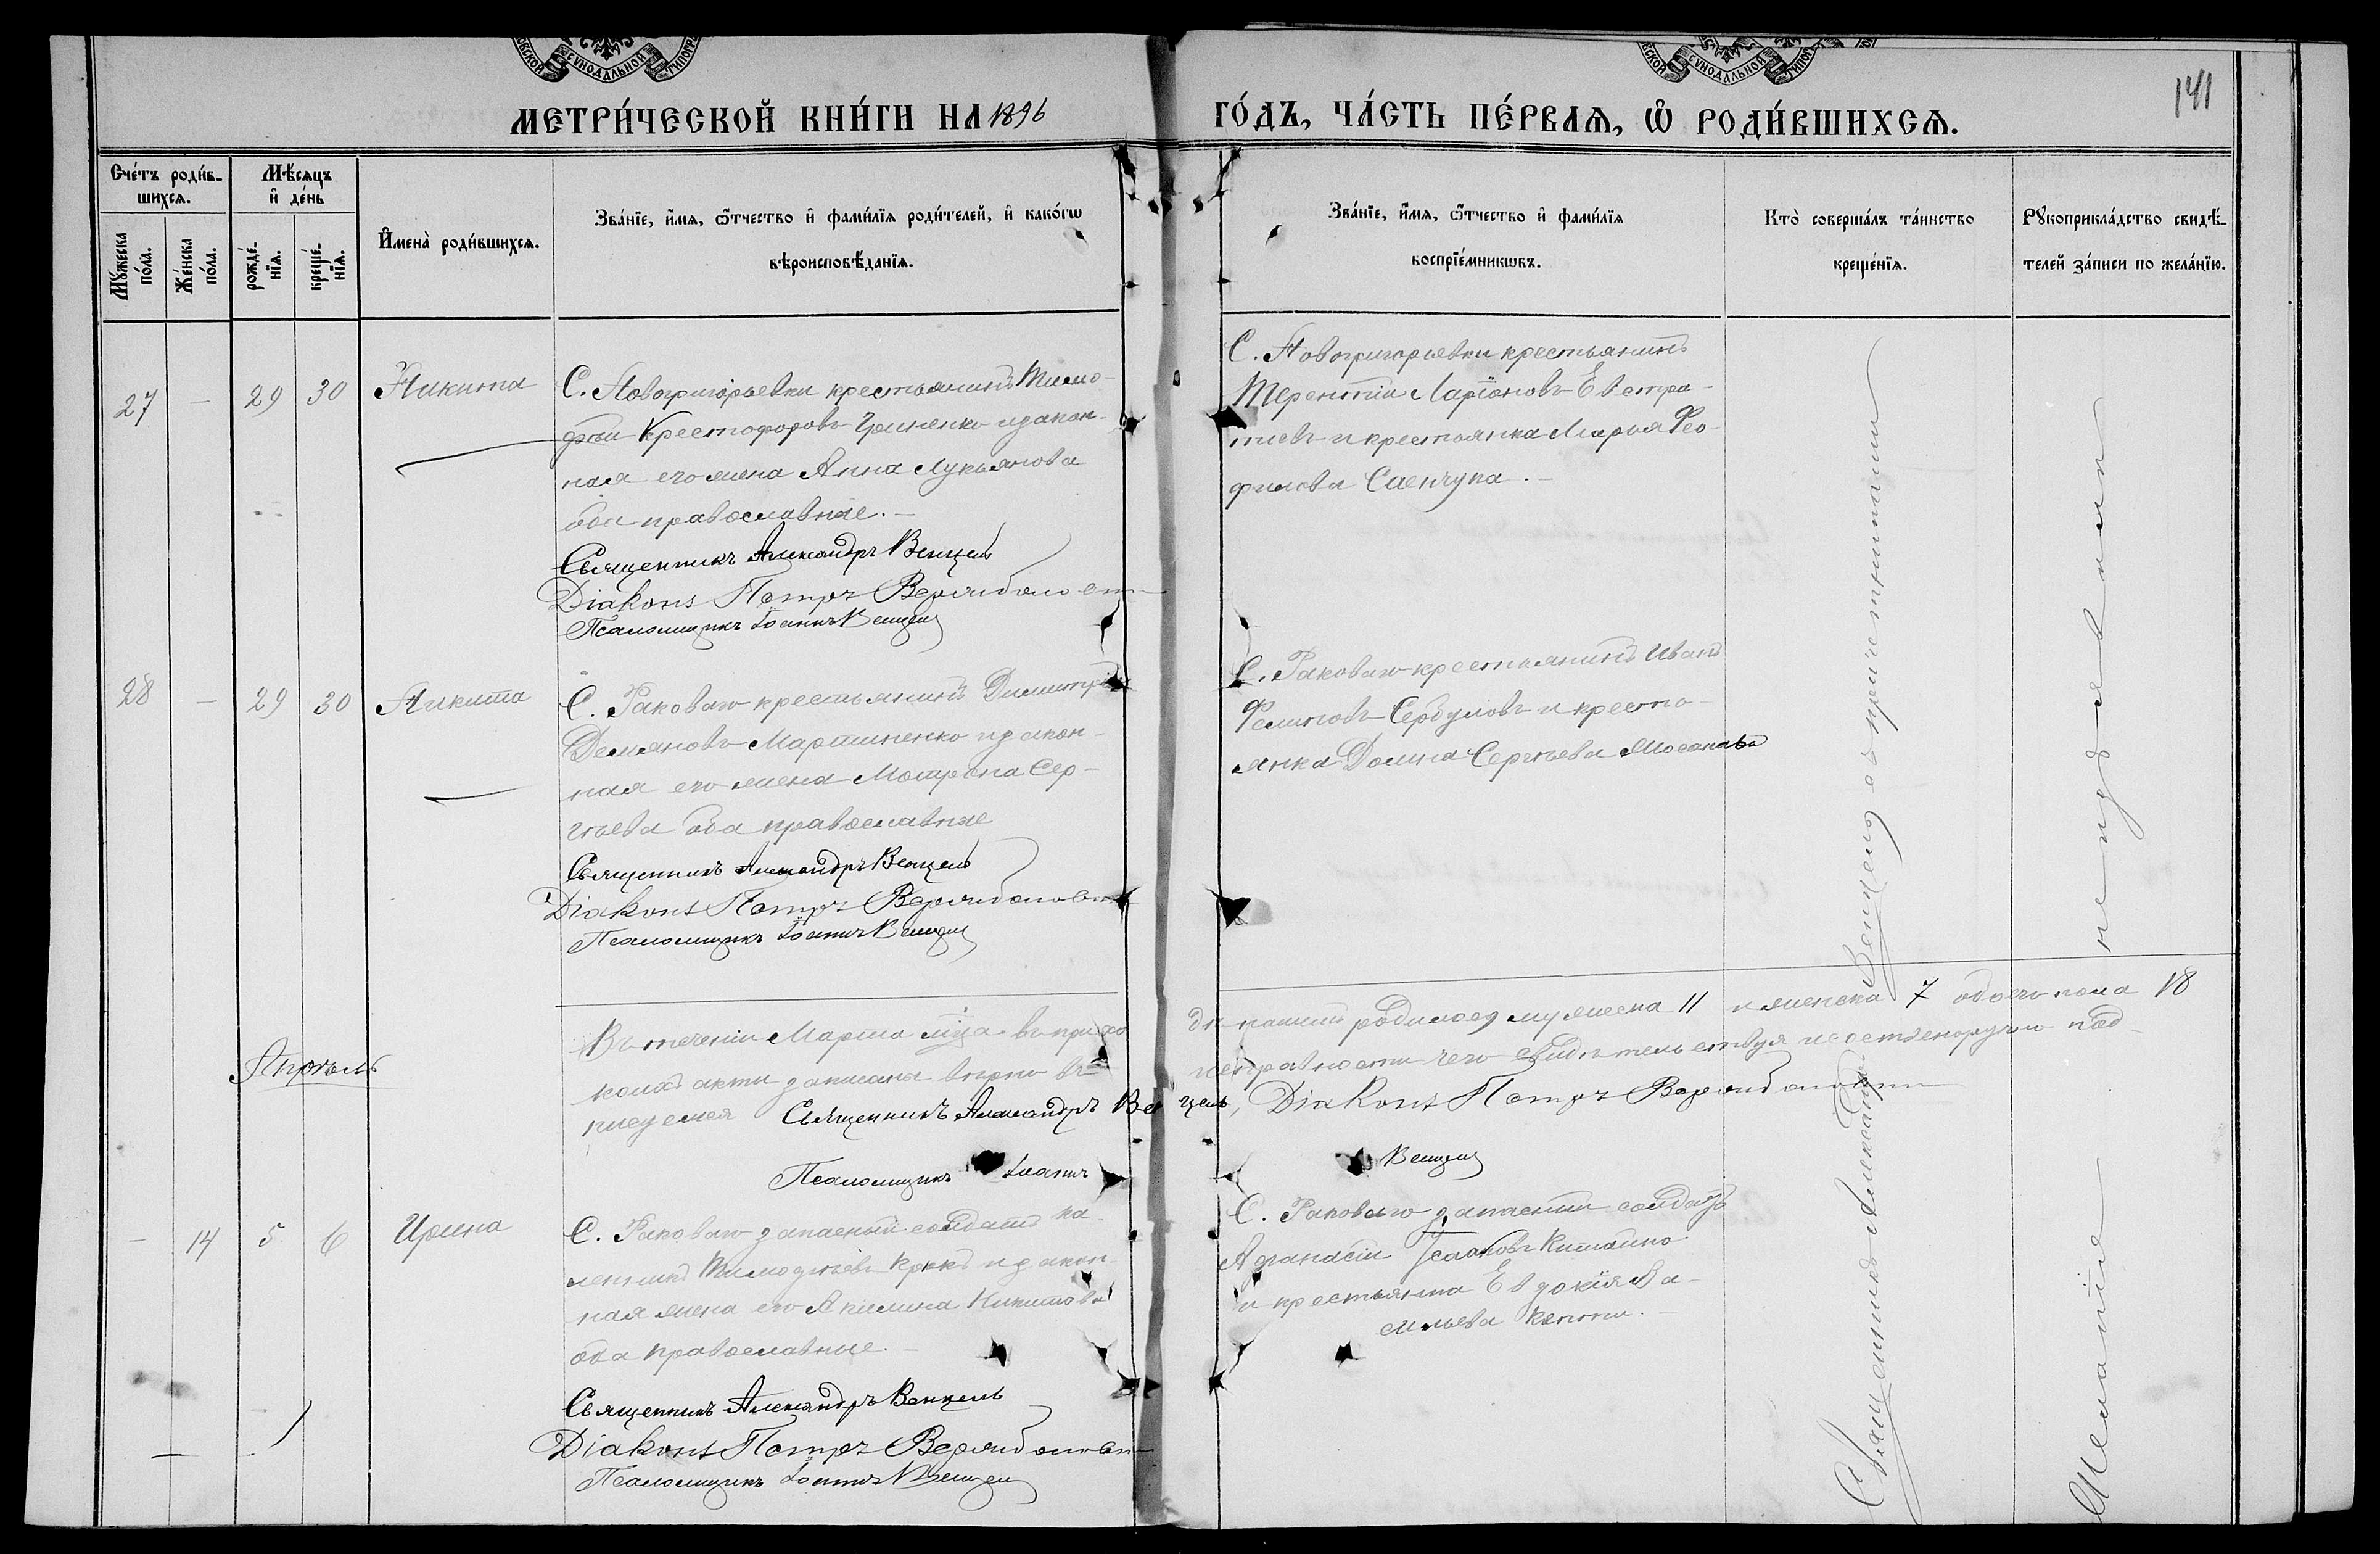 СѴНОДАЛЬНОЙ
СѴНОДАЛЬНОЙ
141
МЕТРИ́ЧЕСКОЙ КНИ́ГИ НА 1896
ГО́ДЪ, ЧА́СТЬ ПЕ́РВАѦ, Ѡ РОДИ́ВШИХСѦ.
Сче́тъ роди́в-
шихсѧ.
Мꙋ́жеска
по́ла.
Же́нска
по́ла.
Мѣ́сѧцъ
и҆ де́нь
рожде́-
нїѧ.
креще́-
нїѧ.
И҆мена̀ роди́вшихсѧ.
Зва́нїе, и҆́мѧ, ѻ҆́тчество и҆ фами́лїѧ роди́телей, и҆ како́гѡ
вѣроисповѣ́данїѧ.
Зва́нїе, и҆́мѧ, ѻ҆́тчество и҆ фами́лїѧ
воспрїе́мникѡвъ.
Кто̀ соверша́лъ та́инство
креще́нїѧ.
Рꙋкоприкла́дство свидѣ́-
телей за́писи по жела́нїю.
27 — 29 30 Никита
С. Новогригорьевки крестьянинъ Тимо-
фей Крестофоровъ Гриненко и закон-
ная его жена Анна Лукьянова
оба православные. —
Священникъ Александръ Венцель
Dіаконъ Петръ
Псаломщикъ Іоаннъ Венцель
С. Новогригорьевки крестьянинъ
Терентій Ларіоновъ Евстра-
тіевъ и крестьянка Марья Фео-
филова Саенчука. —
28 — 29 30 Никита
С. Раковаго крестьянинъ Димитрій
Демьяновъ Мартиненко и закон-
ная его жена Мотрона Сер-
гѣева оба православные
Священникъ Александръ Венцель
Dіаконъ Петръ
Псаломщикъ Іоаннъ Венцель
С. Раковаго крестьянинъ Иванъ
Филиповъ Сербуловъ и кресть-
янка Домна Сергѣева
Въ теченіи Марта м-ца въ прихо
дѣ нашемъ родилось мужеска 11 и женска 7 обоего пола 18
коихъ акты записаны вѣрно въ
исправности чего свидѣтельствуя и собственоручно под-
писуемся Священникъ Александръ Венцель, Dіаконъ Петръ
Псаломщикъ Іоаннъ Венцель
Апрѣль
— 14 5 6 Ирина
С. Раковаго запасный солдатъ Ка-
ленникъ Тимофѣевъ Крукъ и закон-
ная жена его Акилина Никитова
оба православные. —
Священникъ Александръ Венцель
Dіаконъ Петръ
Псаломщикъ Іоаннъ Венцель
С. Раковаго запасный солдатъ
Афанасій Исааковъ
и крестьянка Евдокія Са-
мильева
Священникъ Александръ Венцель съ причетниками
Желаніе не изъявили